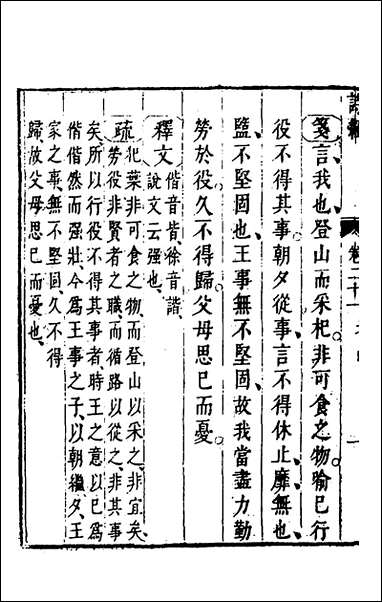 箋言我也登山而采杞非可食之物喻已行
役不得其事朝夕從事言不得休止靡無也
盬不堅固也王事無不堅固故我當盡力勤
勞於役久不得歸父母思已而憂
釋文
偕音皆徐音諧
說文云強也
疏
杞葉非可食之物而登山以采之非宜矣
勞役非賢者之職而循路以從之非其事
矣所以行役不得其事者時王之意以已爲
偕偕然而强壯今爲王事之子以朝繼夕王
家之事無不堅固久不得
歸故父母思已而憂也
卷二十一